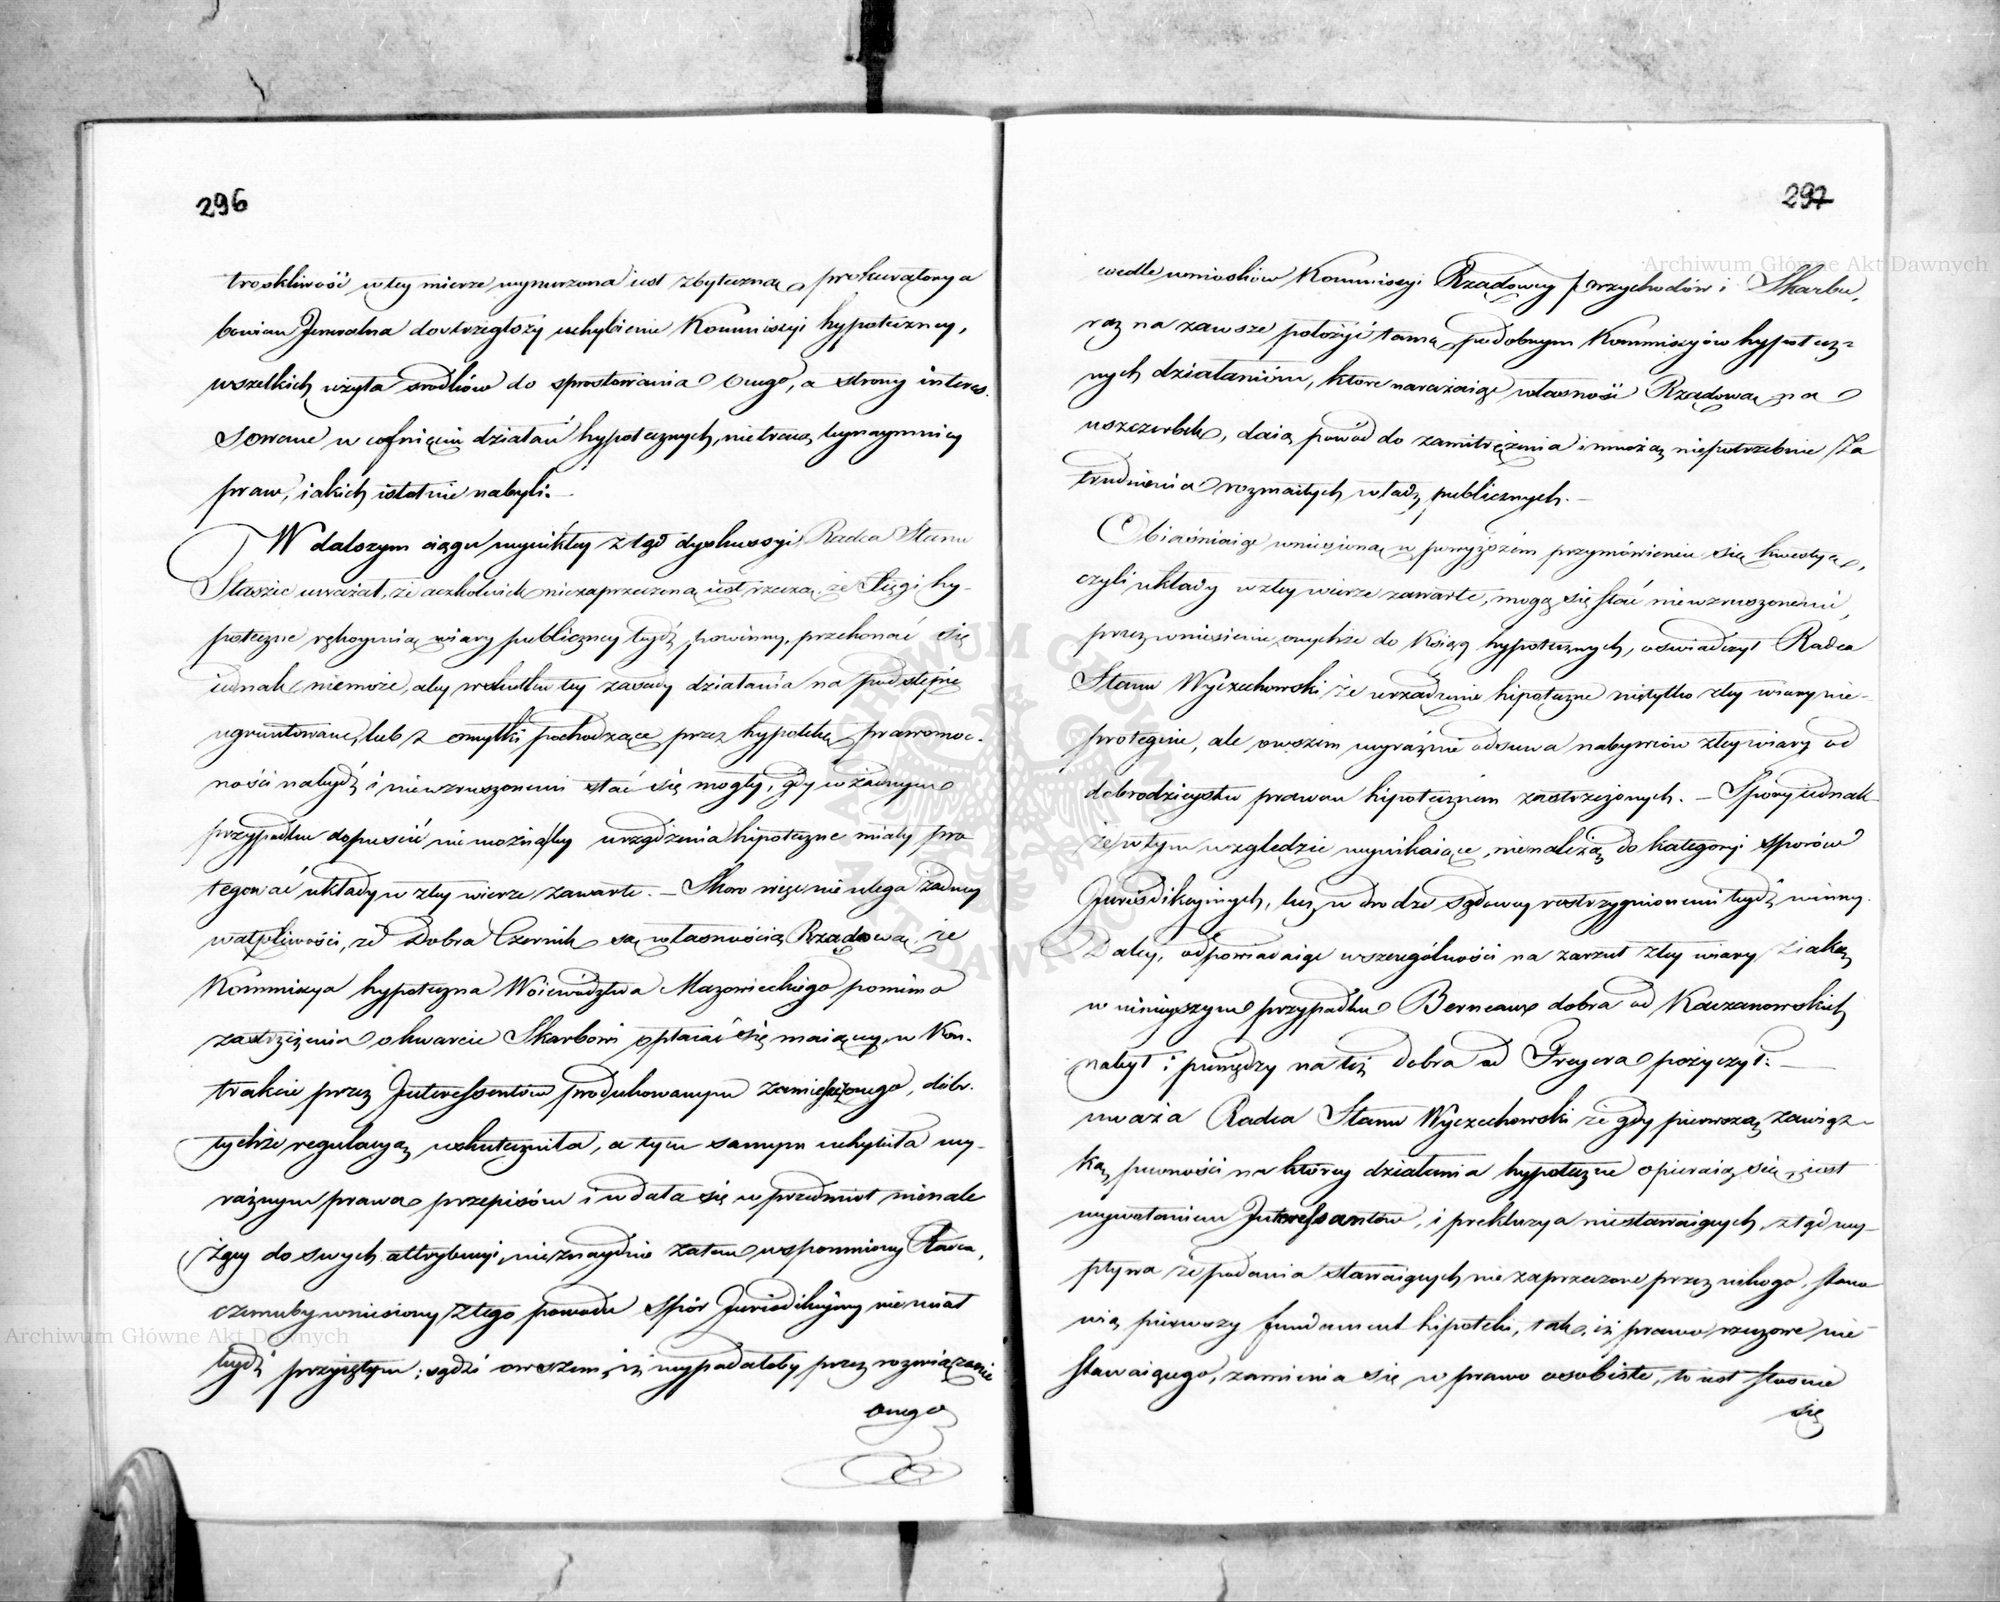 296
troskliwość w tey mierze wynurzona iest zbyteczna, prokuratorya
bowiem Jeneralna dostrzegłszy uchybienie Kommissyi hypoteczney,
wszelkich użyła srodków do sprostowania onego, a strony interes.
sowane w cofnięciu działań hypotecznych, nietracą bynaymniey
praw, iakich istotnie nabyli.
W dalszym ciągu wynikłey ztąd dyskussyi, Radca Stanu
Staszic uważał, że aczkolwiek niezaprzeczoną iest rzeczą, że Xięgi hy-
poteczne rękoymią wiary publiczney bydź powinny, przekonać się
iednak niemoże, aby wskutku tey zasady działania na podstępie
ugruntowane, lub z omyłki pochodzące przez hypotekę prawomoc.
ności nabydź i niewzruszonemi stać się mogły, gdy w żadnym
przypadku dopuscić nie można, by urządzenia hipoteczne miały pro
tegować układy w złey wierze zawarte. – Skoro więc nie ulega żadney
wątpliwości, że Dobra Czernik są własnością Rządową, że
Kommissya hypoteczna Woiewództwa Mazowieckiego pomimo
zastrzeżenia o kwarcie Skarbowi opłacać się maiącey, w Kon.
trakcie przez Interessentów produkowanym zamieszczonego, dóbr.
tychże regulacyą uskuteczniła, a tym samym uchybiła wy-
raźnym prawa przepisóm i wdała się w przedmiot nienale
żący do swych attrybucyi, nieznayduie zatem wspomniony Radca,
czemuby wniesiony z tego powodu spór Jurisdikcyiny niemiał
bydź przyiętym; sądzi owszem, iż wypadałoby przez rozwiązanie
onego
297
wedle wniosków Kommissyi Rządowey przychodów i Skarbu,
raz na zawsze położyć tamę podobnym Kommissyów hypotecz=
nych działaniom, które narażaiąc własność Rządową na
uszczerbek, daią powód do zamitrężenia i mnożą niepotrzebnie Za
trudnienia rozmaitych władz publicznych. –
Obiaśniaiąc wniesioną w powyższem przymówieniu się kwestyą,
czyli układy w złey wierze zawarte, mogą się stać niewzruszonemi,
przez wniesienie onychże do Ksiąg hypotecznych, oświadczył Radca
Stanu Wyczechowski, że urządzenie hipoteczne nietylko złey wiary nie-
proteguie, ale owszem wyraźnie odsuwa nabywców złey wiary od
dobrodzieystw prawem hipotecznem zastrzeżonych. – Spory iednak
że w tym względzie wynikaiące, nienależą do kategoryi sporów
Jurisdikcyinych, lecz w drodze sądowey rostrzygnionemi bydź winny.
Daley, odpowiadaiąc wszczególności na zarzut złey wiary z iaką
w ninieyszym przypadku Berneaux dobra od Kaczanowskich
nabył i pieniędzy na też dobra od Freyera pożyczył: –
uważa Radca Stanu Wyczechowski że gdy pierwszą zawiąz-
ką pewności na którey działania hypoteczne opieraią się, iest
wywołaniem Interessantów, i prekluzya niestawaiących, ztąd wy-
pływa że podania stawaiących niezaprzeczone przez nikogo, stano
wią pierwszy fundament hipoteki, tak, iż prawo rzeczowe nie
stawaiącego, zamienia się w prawo osobiste, to iest staoie
się
Archiwum Główne Akt Dawnych
Archiwum Główne Akt Dawnych